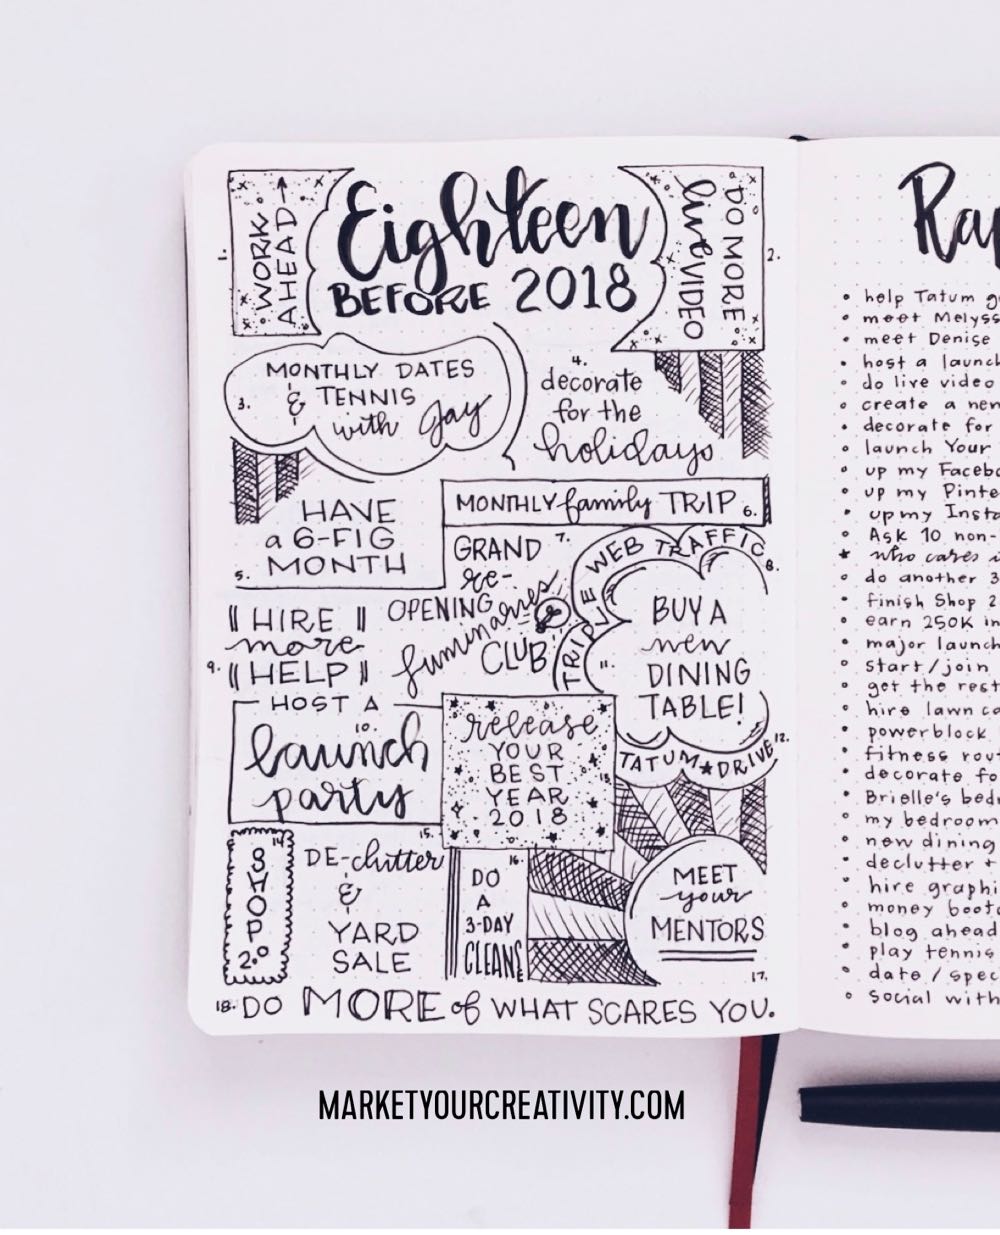 Eighteen
BEFORE 2018
1. WORK
AHEAD
2. DO MORE
live VIDEO
3. MONTHLY DATES
& TENNIS
with Jay
4.
decorate
for the
holidays
HAVE
a 6-FIG
5. MONTH
MONTHLY family TRIP 6.
GRAND 7.
re-
OPENING
luminaries
CLUB
TRIPLE WEB TRAFFIC
8.
HIRE
more
9. HELP
HOST A
10.
launch
party
11.
BUY A
new
DINING
TABLE!
12.
TATUM★DRIVE
release
YOUR
BEST
YEAR
2018
14.
SHOP
2.0
15.
DE-clutter
&
YARD
SALE
16.
DO
A
3-DAY
CLEANS
MEET
your
MENTORS
17.
18. DO MORE of WHAT SCARES YOU.
Ra
• help Tatum g
• meet Melyss
• meet Denise
• host a launch
• do live video
• create a new
• decorate for
• launch Your
• up my Facebo
• up my Pinte
• up my Insta
• Ask 10 non-
★ who cares i
• do another 3
• finish Shop 2
• earn 250K in
• major launch
• start/join
• get the rest
• hire lawn ca
• powerblock
• fitness rout
• decorate fo
• Brielle's bedr
• my bedroom
• new dining
• declutter +
• hire graphi
• money boot
• blog ahead
• play tennis
• date / spec
• social with
MARKETYOURCREATIVITY.COM